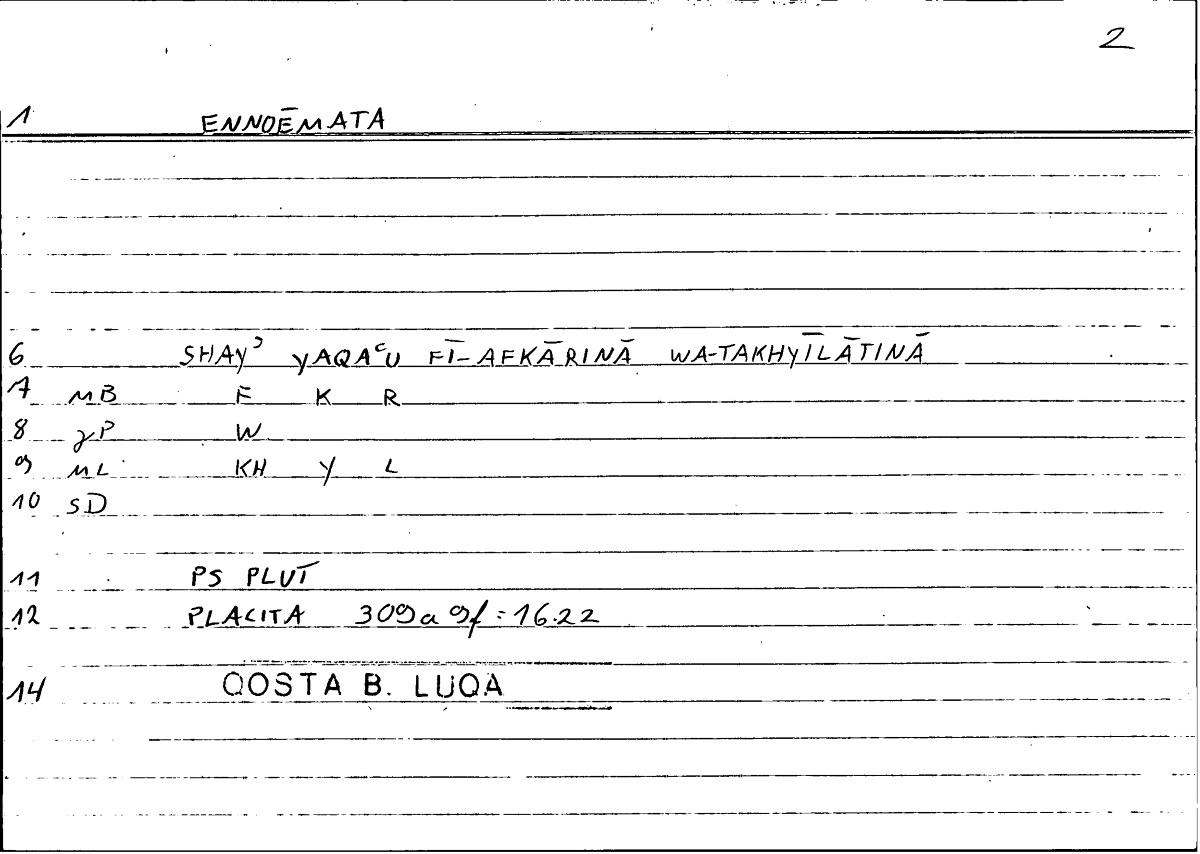 2
1 ENNOĒMATA
6 SHAYʾ YAQAʿU FĪ-AFKĀRINĀ WA-TAKHYĪLĀTINĀ
7 MB F K R
8 γP W
9 ML KH Y L
10 SD
11 PS PLUT
12 PLACITA 309a 9f = 16.22
14 QOSTA B. LUQA